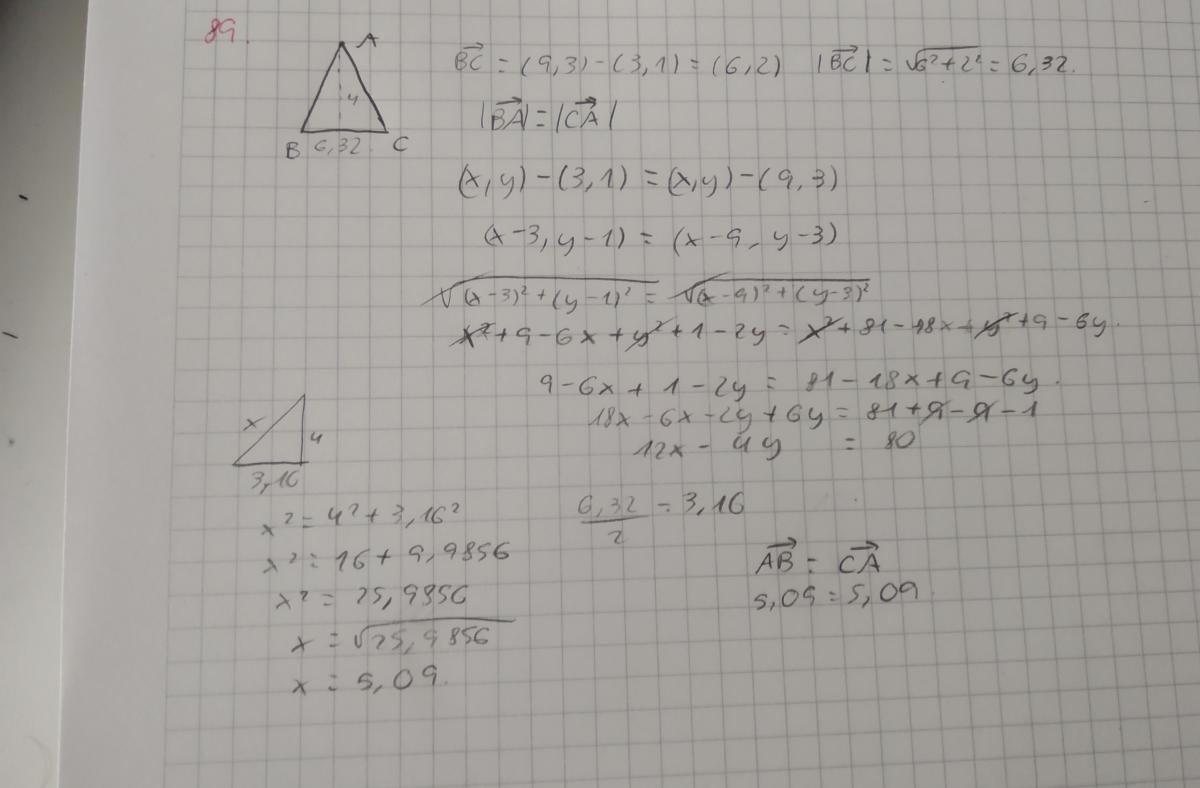 89.
A
4
B 6,32 C
BC = (9,3) - (3,1) = (6,2) |BC| = √6²+2² = 6,32.
|BA| = |CA|
(x,y) - (3,1) = (x,y) - (9,3)
(x-3, y-1) = (x-9, y-3)
√(x-3)² + (y-1)² = √(x-9)² + (y-3)²
x² + 9 - 6x + y² + 1 - 2y = x² + 81 - 18x + y² + 9 - 6y.
9 - 6x + 1 - 2y = 81 - 18x + 9 - 6y.
18x - 6x - 2y + 6y = 81 + 9 - 9 - 1
12x - 4y = 80
x
4
3,16
x² = 4² + 3,16²
x² = 16 + 9,9856
x² = 25,9856
x = √25,9856
x = 5,09.
6,32 / 2 = 3,16
AB = CA
5,09 = 5,09